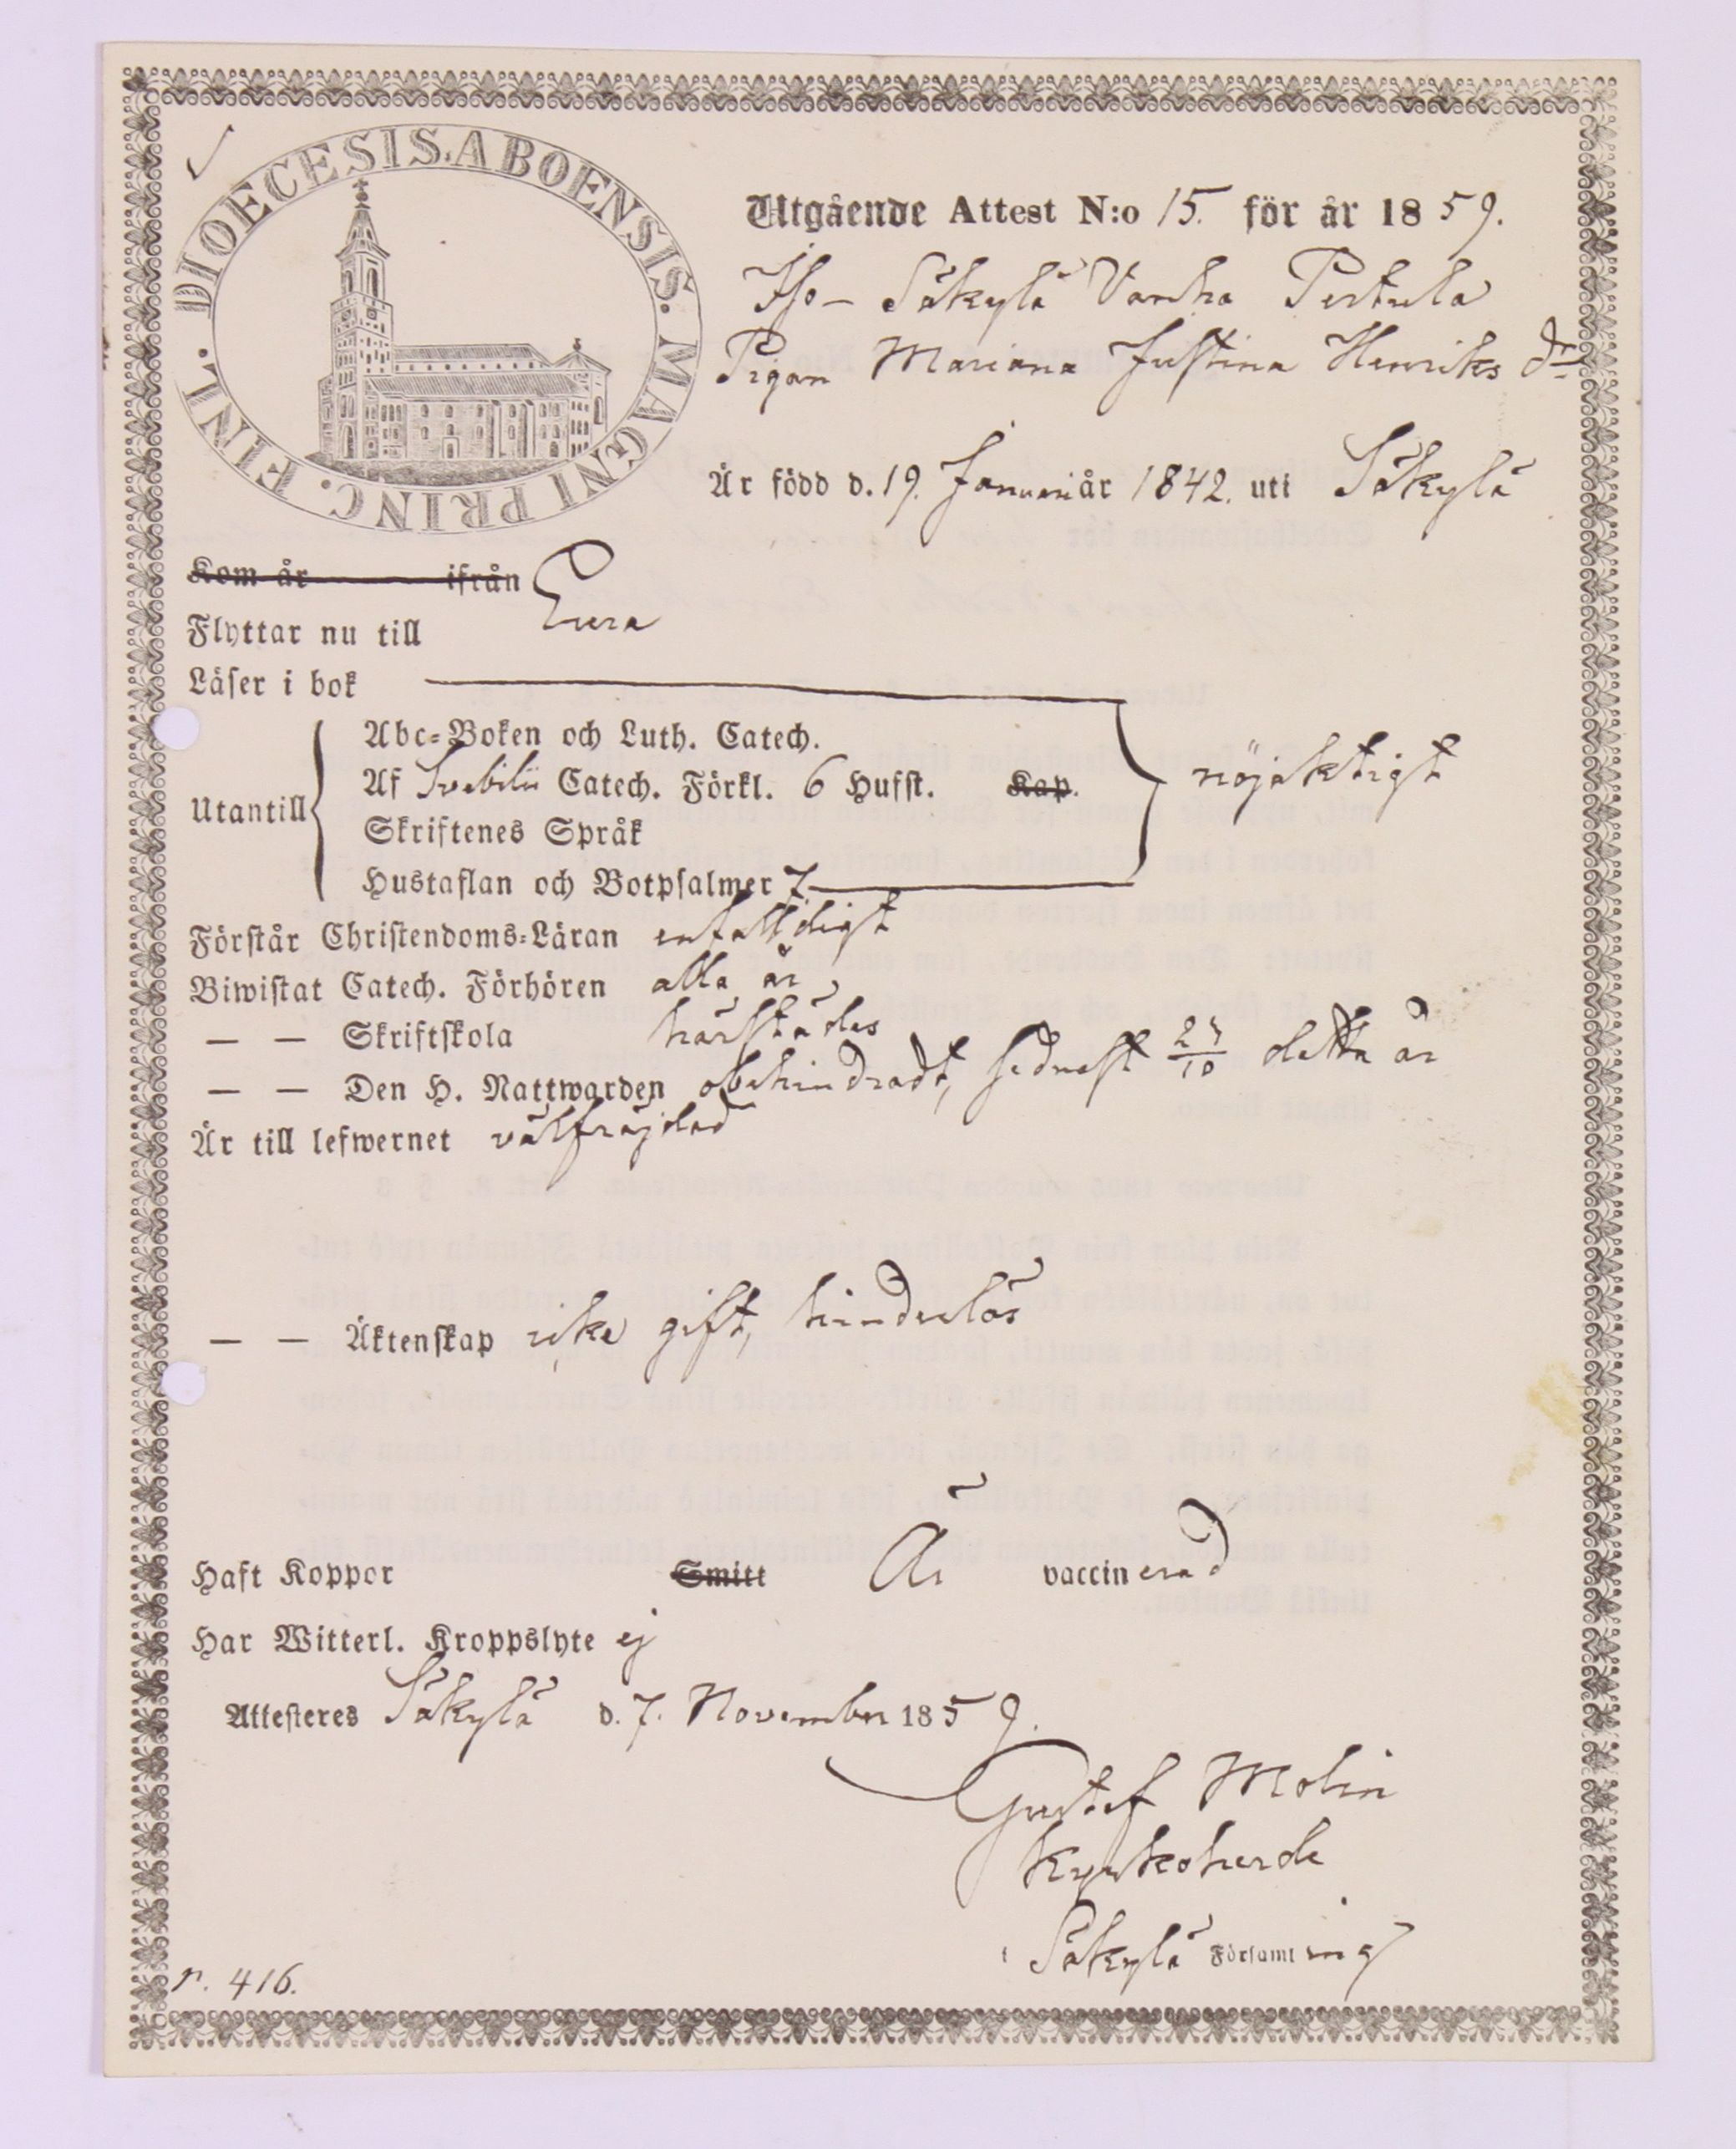 DIOECESIS. ABOENSIS. MAGNI PRINC. FINL.
Utgående Attest N:o 15. för år 1859.
Iso- Säkylä Vanha Pertula
Pigan Mariana Justina Henriks dr
Är född d. 19. Januari år 1842. uti Säkylä
Kom år ifrån
Flyttar nu till Eura
Läser i bok
Abc-Boken och Luth. Catech.
Utantill Af Svebilii Catech. Förkl. 6 Hufst. Kap. nöjaktigt
Skriftenes Språk
Hustaflan och Botpsalmer 7.
Förstår Christendoms-Läran enfalldigt
Biwistat Catech. Förhören alla år
— — Skriftskola härstädes
— — Den H. Nattwarden obehindradt, sednast /10 detta år
Är till lefwernet välfräjdad
— — Äktenskap icke gift, hinderlös
Haft Koppor Smitt Är vaccinerad
Har Witterl. Kroppslyte ej
Attesteres Säkylä d. 7. November 1859.
Gustef Molin
Kyrkoherde
i Säkylä Församling
n. 416.